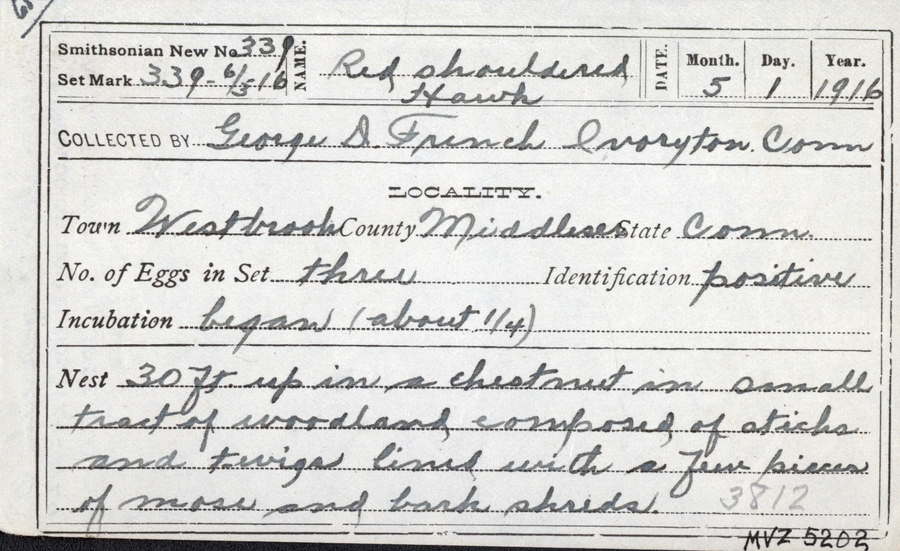 Smithsonian New No 339 NAME. Red shouldered DATE. Month. Day. Year.
Set Mark 339-6/3-16 Hawk 5 1 1916
COLLECTED BY George D French Ivoryton Conn
LOCALITY.
Town Westbrook County Middlesex State Conn.
No. of Eggs in Set three Identification positive
Incubation began (about 1/4)
Nest 30 ft. up in a chestnut in small
tract of woodland, composed of sticks
and twigs lined with a few pieces
of moss and bark shreds. 3812
MVZ 5202